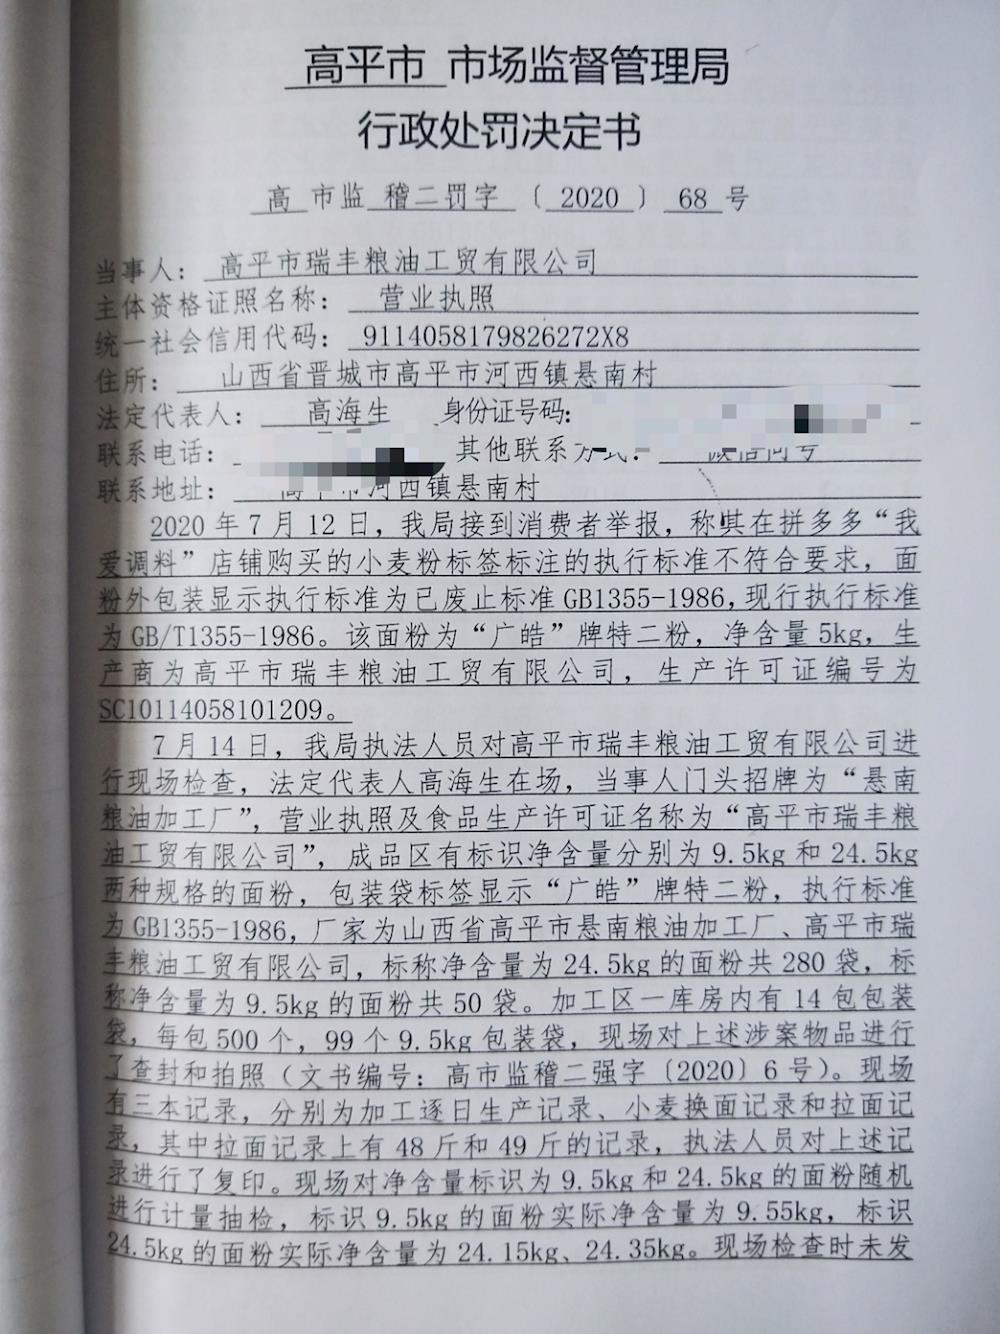 高平市 市场监督管理局
行政处罚决定书
高 市监 稽二罚字 〔 2020 〕 68 号
当事人： 高平市瑞丰粮油工贸有限公司
主体资格证照名称： 营业执照
统一社会信用代码： 9114058179826272X8
住所： 山西省晋城市高平市河西镇悬南村
法定代表人： 高海生 身份证号码：
联系电话： 其他联系方式： 微信同号
联系地址： 高平市河西镇悬南村
2020 年 7 月 12 日，我局接到消费者举报，称其在拼多多“我
爱调料”店铺购买的小麦粉标签标注的执行标准不符合要求，面
粉外包装显示执行标准为已废止标准 GB1355-1986，现行执行标准
为 GB/T1355-1986。该面粉为“广皓”牌特二粉，净含量 5kg，生
产商为高平市瑞丰粮油工贸有限公司，生产许可证编号为
SC10114058101209。
7 月 14 日，我局执法人员对高平市瑞丰粮油工贸有限公司进
行现场检查，法定代表人高海生在场，当事人门头招牌为“悬南
粮油加工厂”，营业执照及食品生产许可证名称为“高平市瑞丰粮
油工贸有限公司”，成品区有标识净含量分别为 9.5kg 和 24.5kg
两种规格的面粉，包装袋标签显示“广皓”牌特二粉，执行标准
为 GB1355-1986，厂家为山西省高平市悬南粮油加工厂、高平市瑞
丰粮油工贸有限公司，标称净含量为 24.5kg 的面粉共 280 袋，标
称净含量为 9.5kg 的面粉共 50 袋。加工区一库房内有 14 包包装
袋，每包 500 个，99 个 9.5kg 包装袋，现场对上述涉案物品进行
了查封和拍照（文书编号：高市监稽二强字〔2020〕6 号）。现场
有三本记录，分别为加工逐日生产记录、小麦换面记录和拉面记
录，其中拉面记录上有 48 斤和 49 斤的记录，执法人员对上述记
录进行了复印。现场对净含量标识为 9.5kg 和 24.5kg 的面粉随机
进行计量抽检，标识 9.5kg 的面粉实际净含量为 9.55kg，标识
24.5kg 的面粉实际净含量为 24.15kg、24.35kg。现场检查时未发